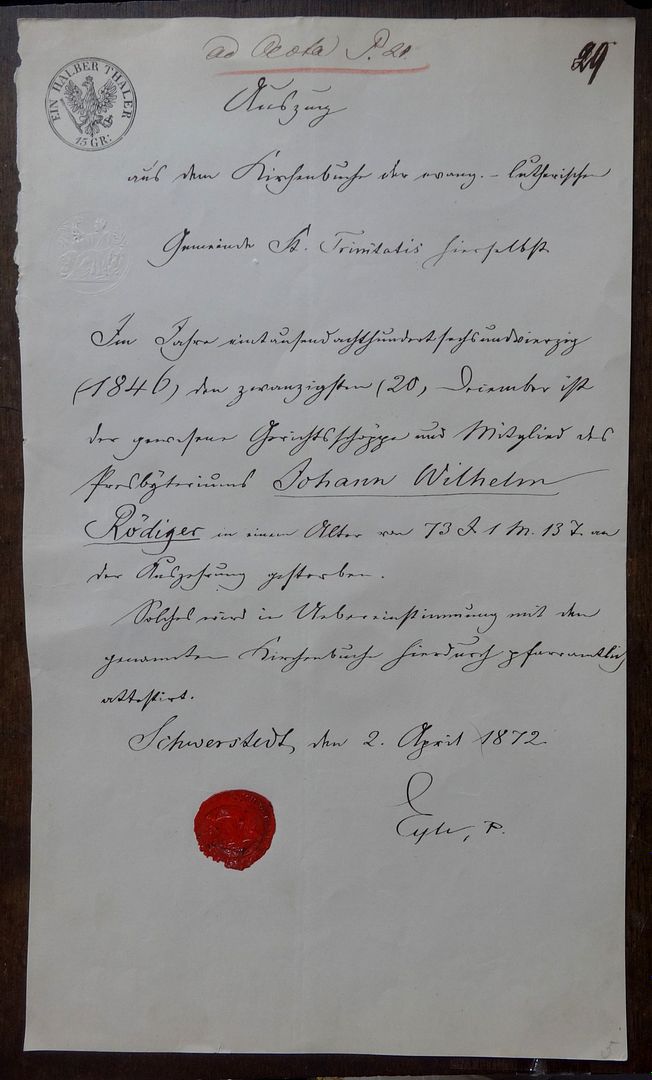 ad Acta P. 20.
29
EIN HALBER THALER
15 GR:
Auszug
aus dem Kirchenbuche der evang.-lutherischen
Gemeinde St. Trinitatis hierselbst
Im Jahre eintausendachthundertsechsundvierzig
(1846) den zwanzigsten (20) December ist
der gewesene Gerichtsschöppe und Mitglied des
Presbyteriums Johann Wilhelm
Rödiger in einem Alter von 73 J. 1 M. 13 T. an
der Auszehrung gestorben.
Solches wird in Uebereinstimmung mit dem
genannten Kirchenbuche hierdurch pfarramtlich
attestirt.
Schwerstedt, den 2. April 1872.
P.